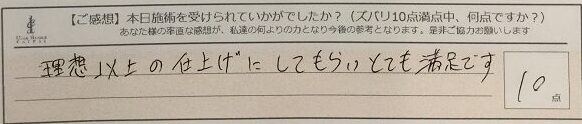 【ご感想】本日施術を受けられていかがでしたか？（ズバリ10点満点中、何点ですか？）
あなた様の率直な感想が、私達の何よりの力となり今後の参考となります。是非ご協力お願いします
理想以上の仕上げにしてもらいとても満足です
10
点